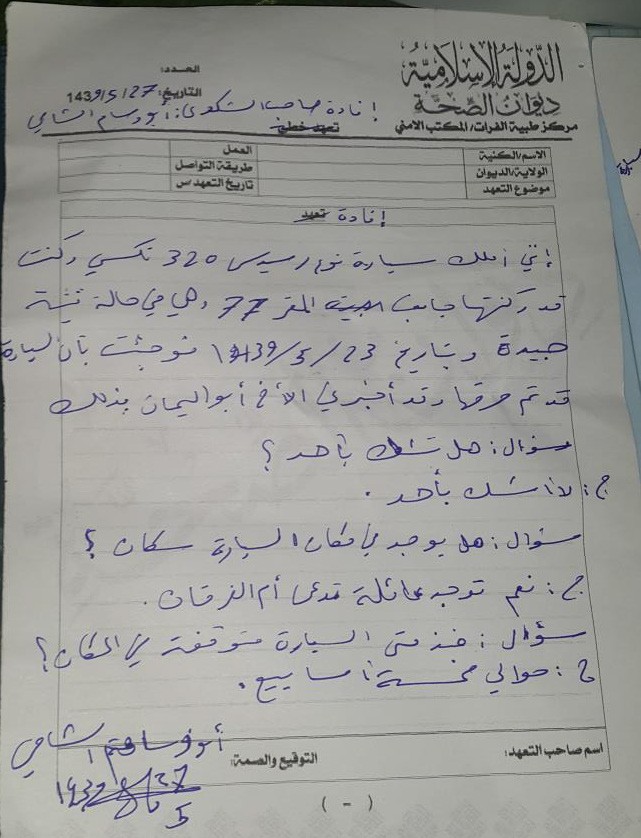 الدولة الإسلامية
ديوان الصحة
مركز طبية الفرات/المكتب الامني
العدد:
التاريخ: 27/5/1439
إفادة صاحب الشكوى: أبو وسام الشامي
تعهد خطي
الاسم/الكنية
العمل
الولاية/الديوان
طريقة التواصل
موضوع التعهد
تاريخ التعهد/س
إفادة تعهد
إني أملك سيارة نوع مرسيدس 320 تكسي وكنت
قد ركنتها جانب المقر 77 وهي في حالة فنية
جيدة وبتاريخ 23/5/1439 فوجئت بأن السيارة
قد تم حرقها وقد أخبرني الأخ أبو اليمان بذلك
سؤال: هل تشك بأحد؟
ج: لا أشك بأحد.
سؤال: هل يوجد في مكان السيارة سكان؟
ج: نعم توجد عائلة تدعى أم الفرقان.
سؤال: منذ متى السيارة متوقفة في المكان؟
ج: حوالي خمسة أسابيع.
اسم صاحب التعهد:
التوقيع والصمة:
الشامي
27
5
( - )